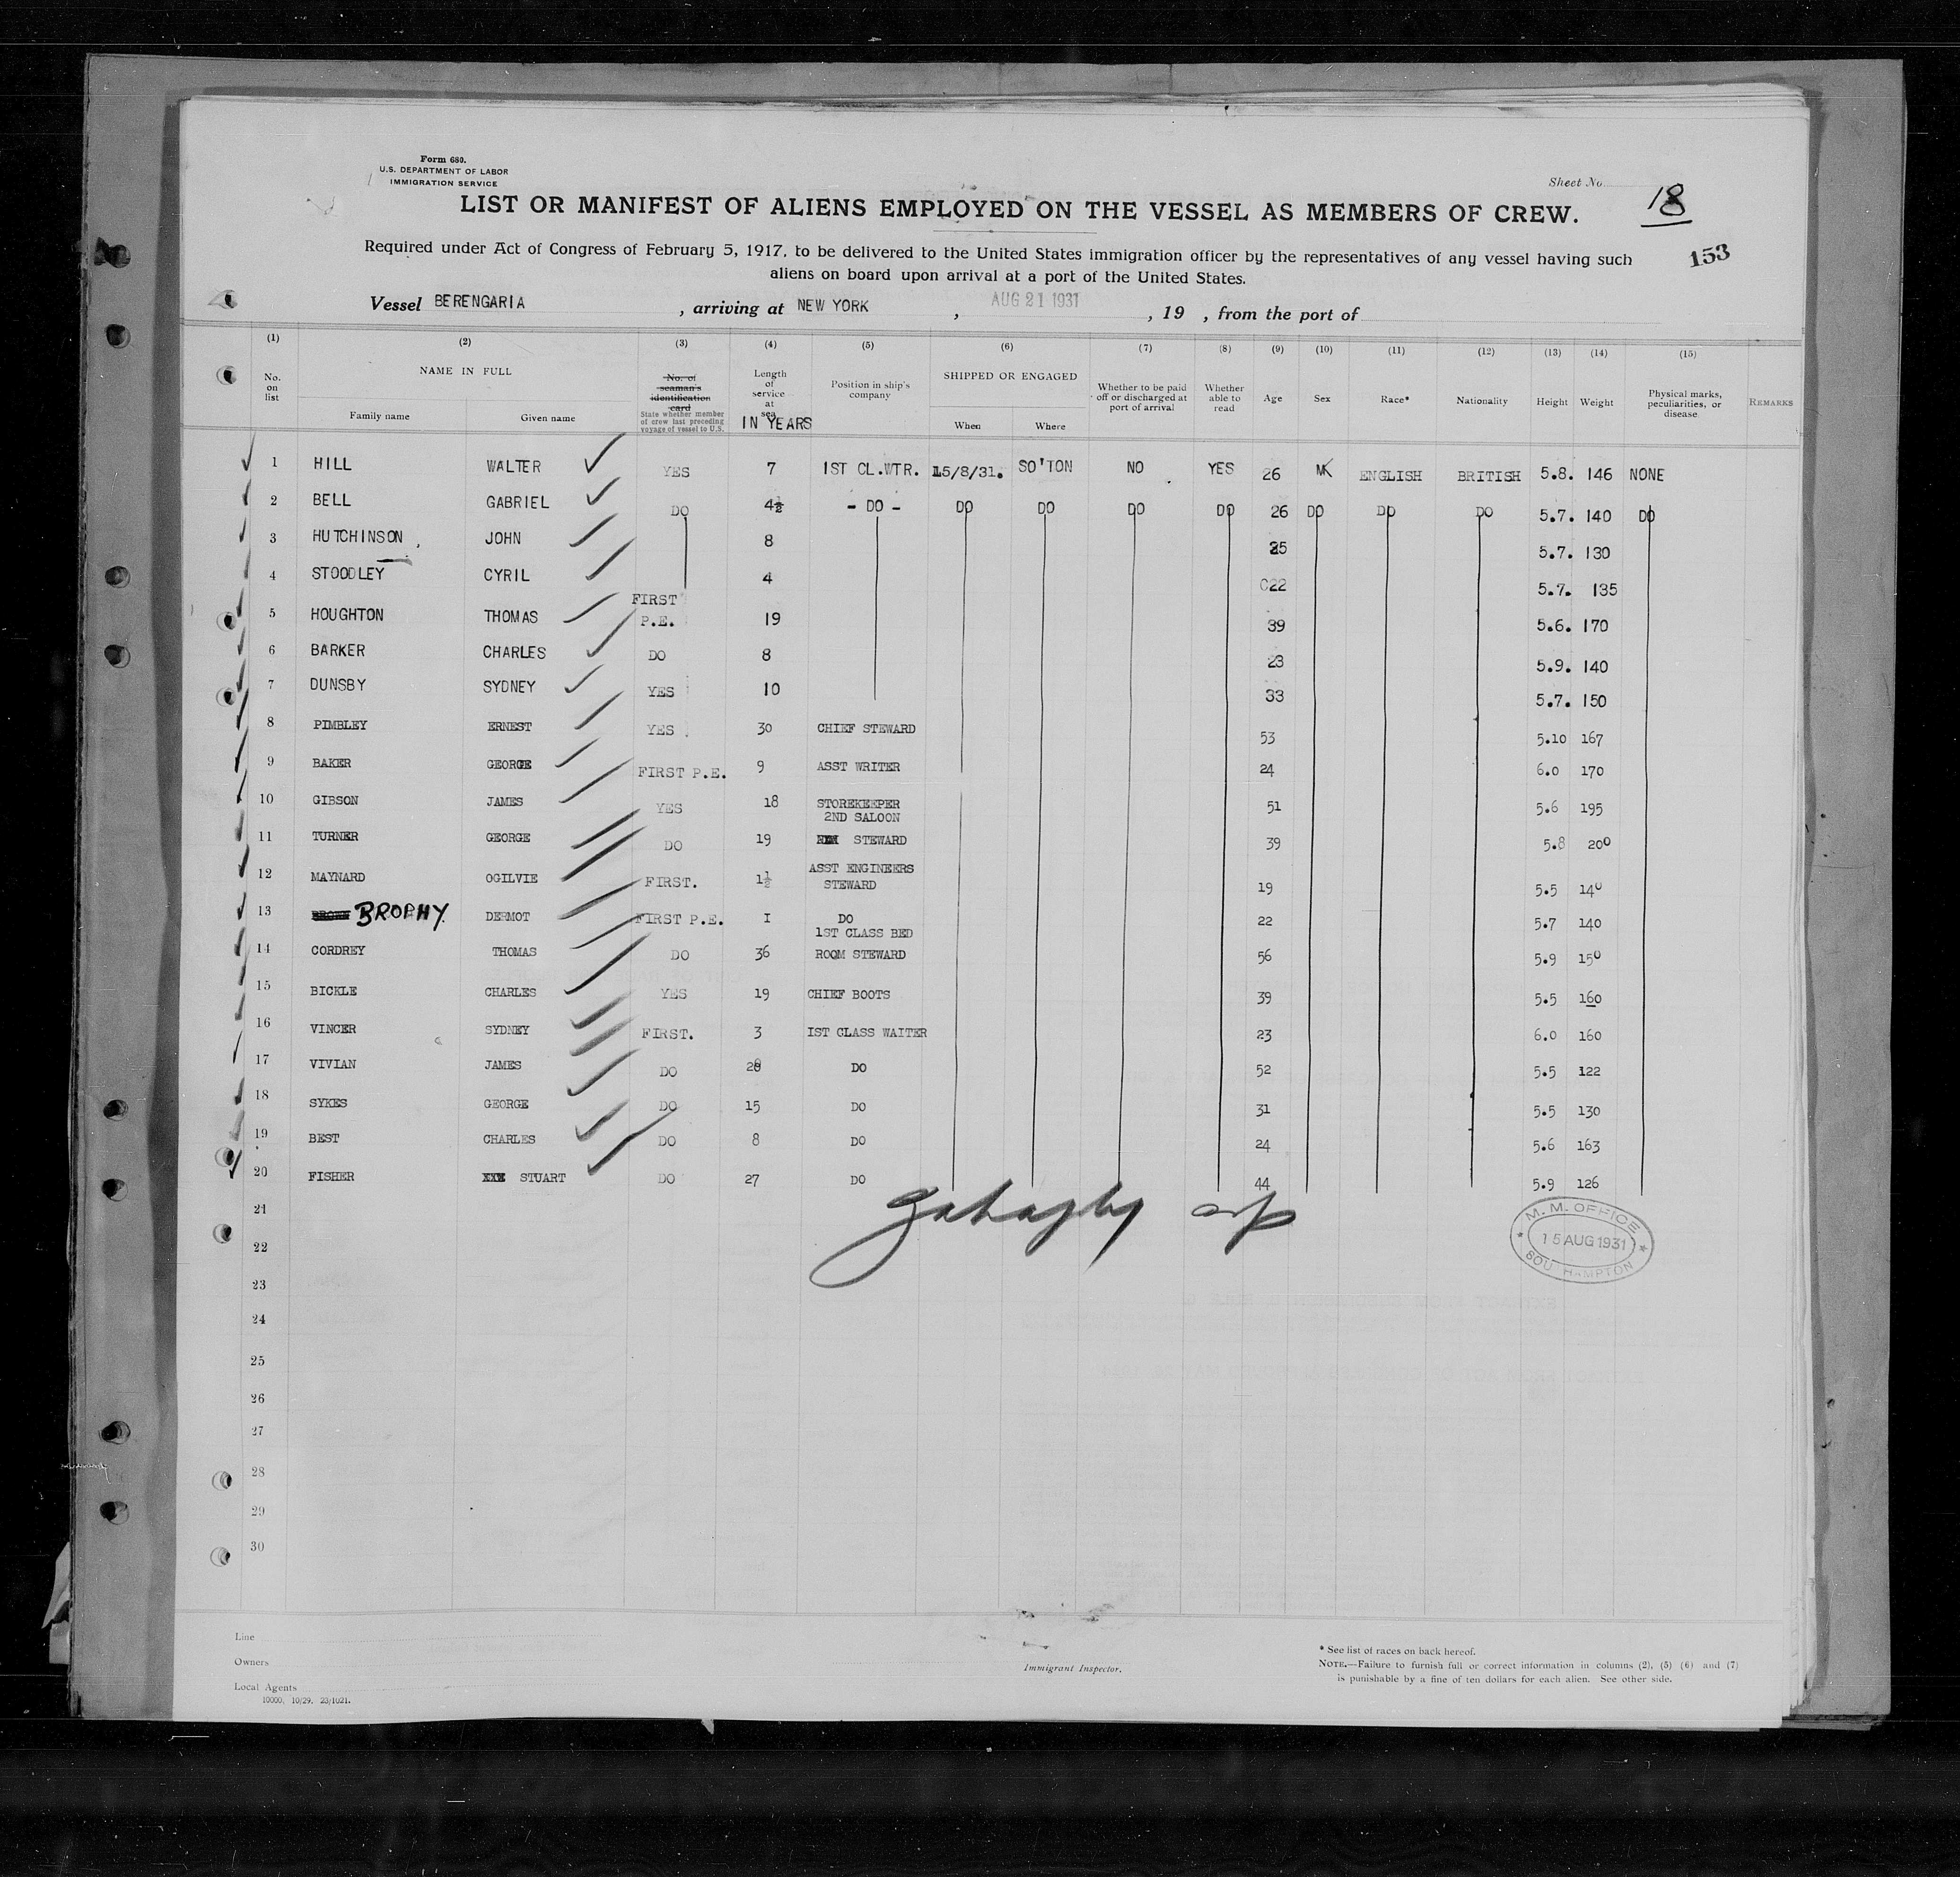 Form 680.
U.S. DEPARTMENT OF LABOR
IMMIGRATION SERVICE
Sheet No. 18
LIST OR MANIFEST OF ALIENS EMPLOYED ON THE VESSEL AS MEMBERS OF CREW.
153
Required under Act of Congress of February 5, 1917, to be delivered to the United States immigration officer by the representatives of any vessel having such
aliens on board upon arrival at a port of the United States.
Vessel BERENGARIA , arriving at NEW YORK , AUG 21 1931 , 19 , from the port of
(1) (2) (3) (4) (5) (6) (7) (8) (9) (10) (11) (12) (13) (14) (15)
No. on list
NAME IN FULL
Family name Given name
No. of seaman's identification card
State whether member of crew last preceding voyage of vessel to U.S.
Length of service at sea IN YEARS
Position in ship's company
SHIPPED OR ENGAGED
When Where
Whether to be paid off or discharged at port of arrival
Whether able to read
Age Sex Race* Nationality Height Weight
Physical marks, peculiarities, or disease
REMARKS
1 HILL WALTER YES 7 1ST CL.WTR. 15/8/31. SO'TON NO YES 26 M ENGLISH BRITISH 5.8. 146 NONE
2 BELL GABRIEL DO 4½ - DO - DO DO DO DO 26 DO DO DO 5.7. 140 DO
3 HUTCHINSON JOHN 8 25 5.7. 130
4 STOODLEY CYRIL 4 22 5.7. 135
5 HOUGHTON THOMAS FIRST P.E. 19 39 5.6. 170
6 BARKER CHARLES DO 8 23 5.9. 140
7 DUNSBY SYDNEY YES 10 33 5.7. 150
8 PIMBLEY ERNEST YES 30 CHIEF STEWARD 53 5.10 167
9 BAKER GEORGE FIRST P.E. 9 ASST WRITER 24 6.0 170
10 GIBSON JAMES YES 18 STOREKEEPER 51 5.6 195
11 TURNER GEORGE DO 19 2ND SALOON STEWARD 39 5.8 200
12 MAYNARD OGILVIE FIRST. 1½ ASST ENGINEERS STEWARD 19 5.5 140
13 BROPHY DERMOT FIRST P.E. I DO 22 5.7 140
14 CORDREY THOMAS DO 36 1ST CLASS BED ROOM STEWARD 56 5.9 150
15 BICKLE CHARLES YES 19 CHIEF BOOTS 39 5.5 160
16 VINCER SYDNEY FIRST. 3 IST CLASS WAITER 23 6.0 160
17 VIVIAN JAMES DO 28 DO 52 5.5 122
18 SYKES GEORGE DO 15 DO 31 5.5 130
19 BEST CHARLES DO 8 DO 24 5.6 163
20 FISHER XXX STUART DO 27 DO 44 5.9 126
21
22
23
24
25
26
27
28
29
30
M. M. OFFICE
15 AUG 1931
SOUTHAMPTON
Line
Owners
Local Agents
10000, 10/29. 23/1021.
Immigrant Inspector.
* See list of races on back hereof.
NOTE.—Failure to furnish full or correct information in columns (2), (5) (6) and (7)
is punishable by a fine of ten dollars for each alien. See other side.